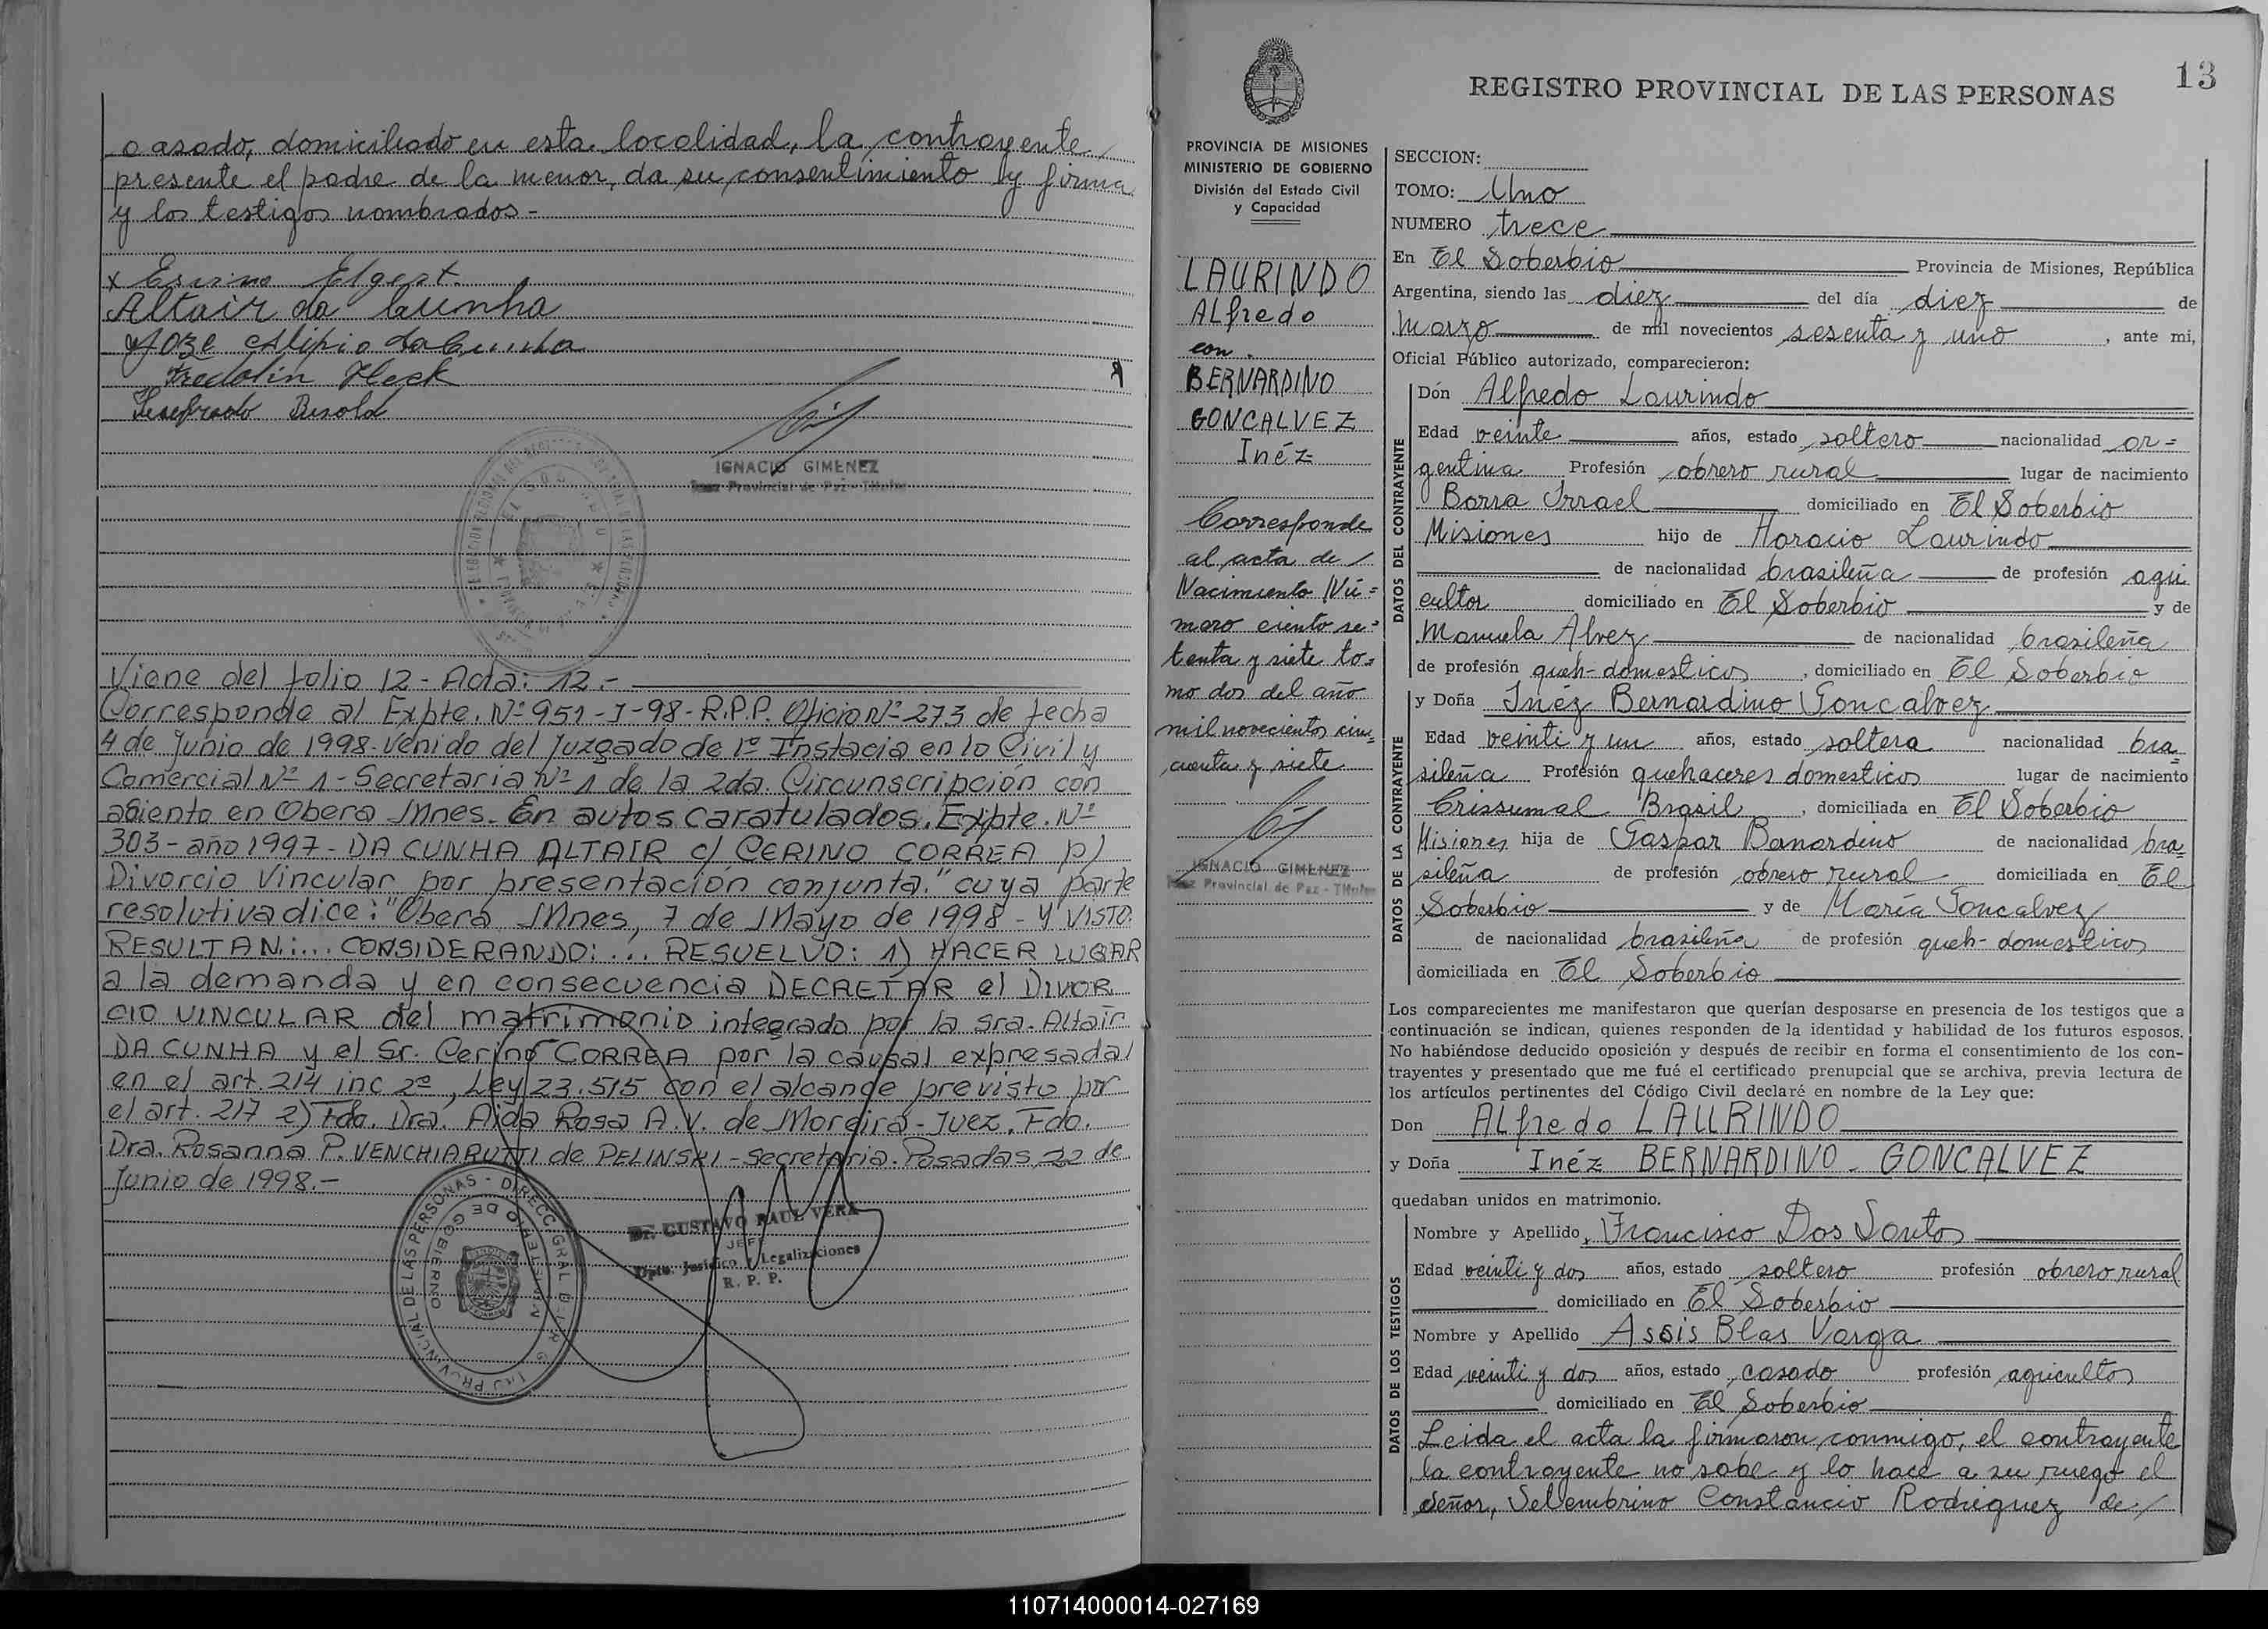 casado, domiciliado en esta localidad, la contrayente,
presente el padre de la menor, da su consentimiento y firma
y los testigos nombrados-
x Elgert.
Altair da Cunha
Joze Alipio da Cunha
Fredolin Heck
IGNACIO GIMENEZ
Juez Provincial de Paz - Titular
Viene del folio 12- Acta: 12.-
Corresponde al Expte. Nº 951-J-98-R.P.P. Oficio Nº 273 de fecha
4 de Junio de 1998. Venido del Juzgado de 1º Instacia en lo Civil y
Comercial Nº 1- Secretaria Nº 1 de la 2da. Circunscripción con
asiento en Obera Mnes. En autos caratulados. Expte. Nº
303-año 1997- DA CUNHA ALTAIR c/ CERINO CORREA p/
Divorcio Vincular por presentación conjunta." cuya parte
resolutiva dice: "Oberá, Mnes, 7 de Mayo de 1998 - Y VISTO:
RESULTAN:... CONSIDERANDO: ... RESUELVO: 1) HACER LUGAR
a la demanda y en consecuencia DECRETAR el DIVOR
CIO VINCULAR del matrimonio integrado por la Sra. Altair
DA CUNHA y el Sr. Cerino CORREA por la causal expresada/
en el art. 214 inc 2º, Ley 23.515 con el alcance previsto por
el art. 217 2) Fdo. Dra. Aida Rosa A.V. de Moreira- Juez. Fdo.
Dra. Rosanna P. VENCHIARUTTI de PELINSKI - Secretaria. Posadas, 22 de
Junio de 1998.-
Dr. GUSTAVO RAUL VERA
JEFE
Dpto. Jurídico Legalizaciones
R. P. P.
13
REGISTRO PROVINCIAL DE LAS PERSONAS
PROVINCIA DE MISIONES
MINISTERIO DE GOBIERNO
División del Estado Civil
y Capacidad
LAURINDO
Alfredo
con
BERNARDINO
GONCALVEZ
Inéz
Corresponde
al acta de /
Nacimiento Nú=
mero ciento se=
tenta y siete to=
mo dos del año
mil novecientos cin=
cuenta y siete.
IGNACIO GIMENEZ
Juez Provincial de Paz - Titular
SECCION:
TOMO: Uno
NUMERO trece
En El Soberbio Provincia de Misiones, República
Argentina, siendo las diez del día diez de
Marzo de mil novecientos sesenta y uno, ante mi,
Oficial Público autorizado, comparecieron:
DATOS DEL CONTRAYENTE
Dón Alfredo Laurindo
Edad veinte años, estado soltero nacionalidad ar=
gentina Profesión obrero rural lugar de nacimiento
Barra Irrael domiciliado en El Soberbio
Misiones hijo de Horacio Laurindo
de nacionalidad brasileña de profesión agri
cultor domiciliado en El Soberbio y de
Manuela Alvez de nacionalidad brasileña
de profesión queh-domesticos, domiciliado en El Soberbio
DATOS DE LA CONTRAYENTE
y Doña Inéz Bernardino Goncalvez
Edad veinti y un años, estado soltera nacionalidad bra
sileña Profesión quehaceres domesticos lugar de nacimiento
Crissumal Brasil, domiciliada en El Soberbio
Misiones hija de Gaspar Bernardino de nacionalidad bra
sileña de profesión obrero rural domiciliado en El
Soberbio y de María Goncalvez
de nacionalidad brasileña de profesión queh-domesticos
domiciliada en El Soberbio
Los comparecientes me manifestaron que querían desposarse en presencia de los testigos que a
continuación se indican, quienes responden de la identidad y habilidad de los futuros esposos.
No habiéndose deducido oposición y después de recibir en forma el consentimiento de los con-
trayentes y presentado que me fué el certificado prenupcial que se archiva, previa lectura de
los artículos pertinentes del Código Civil declaré en nombre de la Ley que:
Don Alfredo LAURINDO
y Doña Inéz BERNARDINO - GONCALVEZ
quedaban unidos en matrimonio.
DATOS DE LOS TESTIGOS
Nombre y Apellido, Francisco Dos Santos
Edad veinti y dos años, estado soltero profesión obrero rural
domiciliado en El Soberbio
Nombre y Apellido Assis Blas Varga
Edad veinti y dos años, estado casado profesión agricultor
domiciliado en El Soberbio
Leida el acta la firmaron conmigo, el contrayente
la contrayente no sabe y lo hace a su ruego el
señor, Setembrino Constancio Rodriguez de/
110714000014-027169